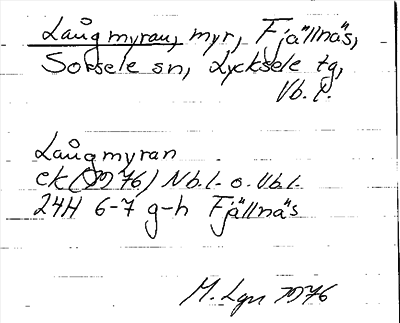 Långmyran, myr, Fjällnäs,
Sorsele sn, Lycksele tg,
Vb.l.
Långmyran
ek (1976) Nb.l. o. Vb.l.
24H 6-7 g-h Fjällnäs
M. Lgn 1976